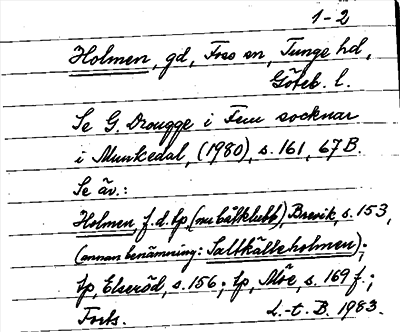 1-2
Holmen, gd, Foss sn, Tunge hd,
Göteb. l.
Se G. Drougge i Fem socknar
i Munkedal, (1980), s. 161, 67 B.
Se äv.:
Holmen, f.d. tp, (nu båtklubb), Brevik, s. 153,
(annan benämning: Saltkälleholmen);
tp, Elseröd, s. 156; tp, Möe, s. 169 f.;
Forts. L.-t. B. 1983.